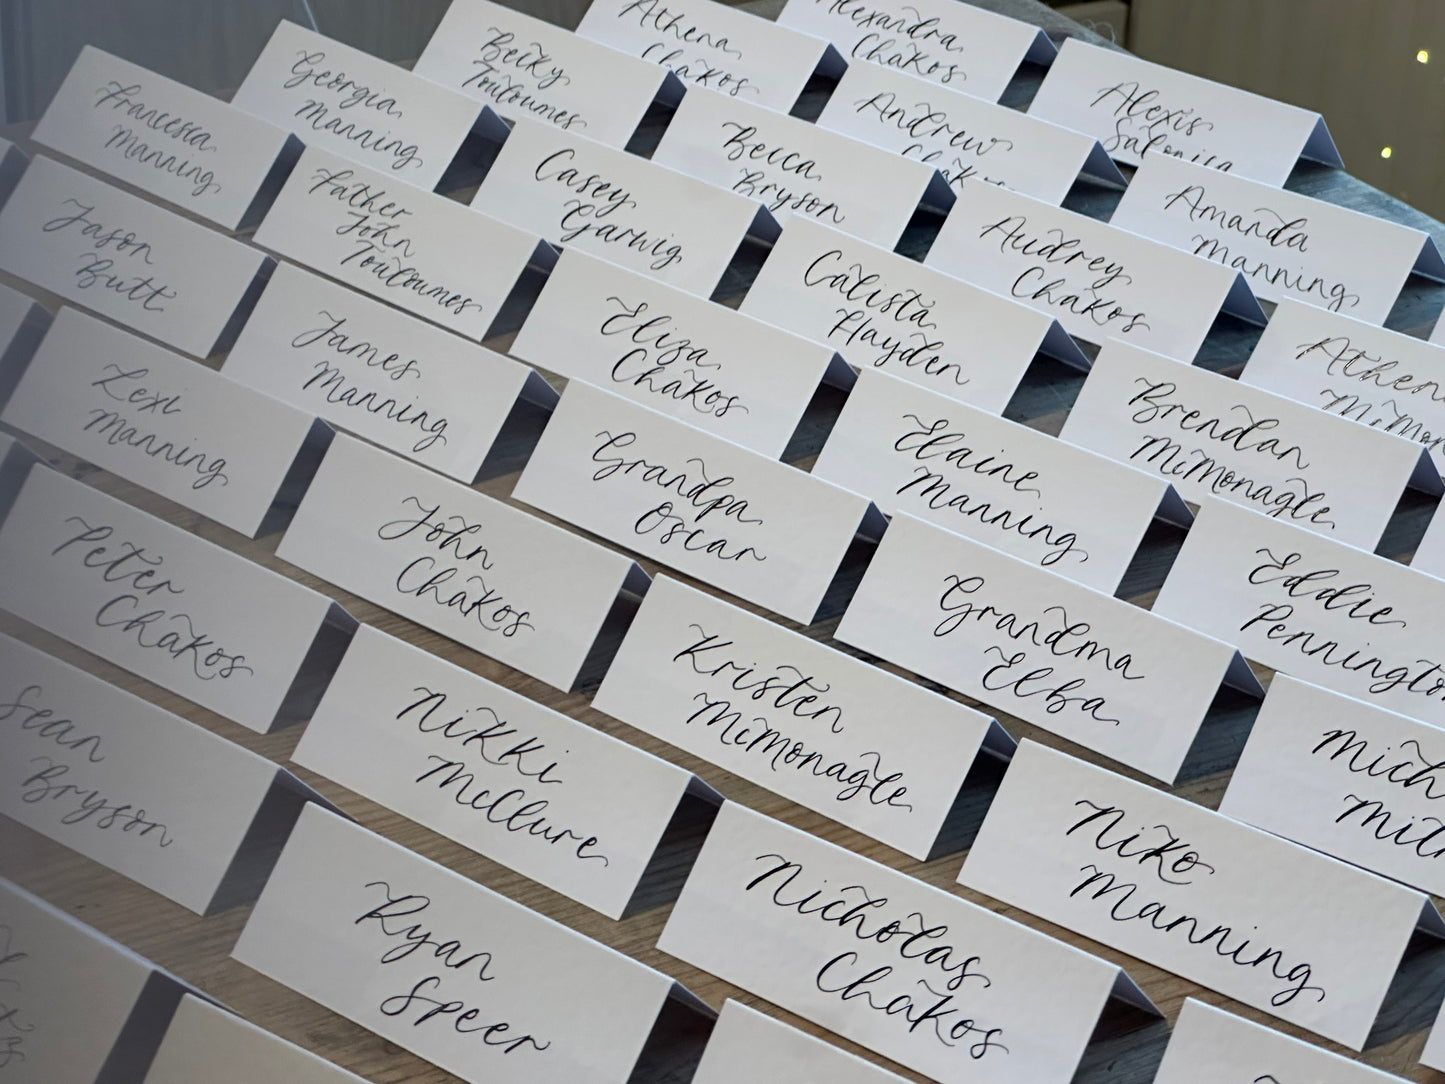 Alexandra
Chakos
Athena
Chakos
Becky
Touloumes
Georgia
Manning
Francesca
Manning
Alexis
Salonica
Andrew
Chakos
Becca
Bryson
Casey
Garwig
Father
John
Touloumes
Jason
Butt
Amanda
Manning
Audrey
Chakos
Calista
Hayden
Eliza
Chakos
James
Manning
Lexi
Manning
Brendan
McMonagle
Elaine
Manning
Grandpa
Oscar
John
Chakos
Peter
Chakos
Eddie
Grandma
Elba
Kristen
McMonagle
Nikki
McClure
Sean
Bryson
Niko
Manning
Nicholas
Chakos
Ryan
Speer